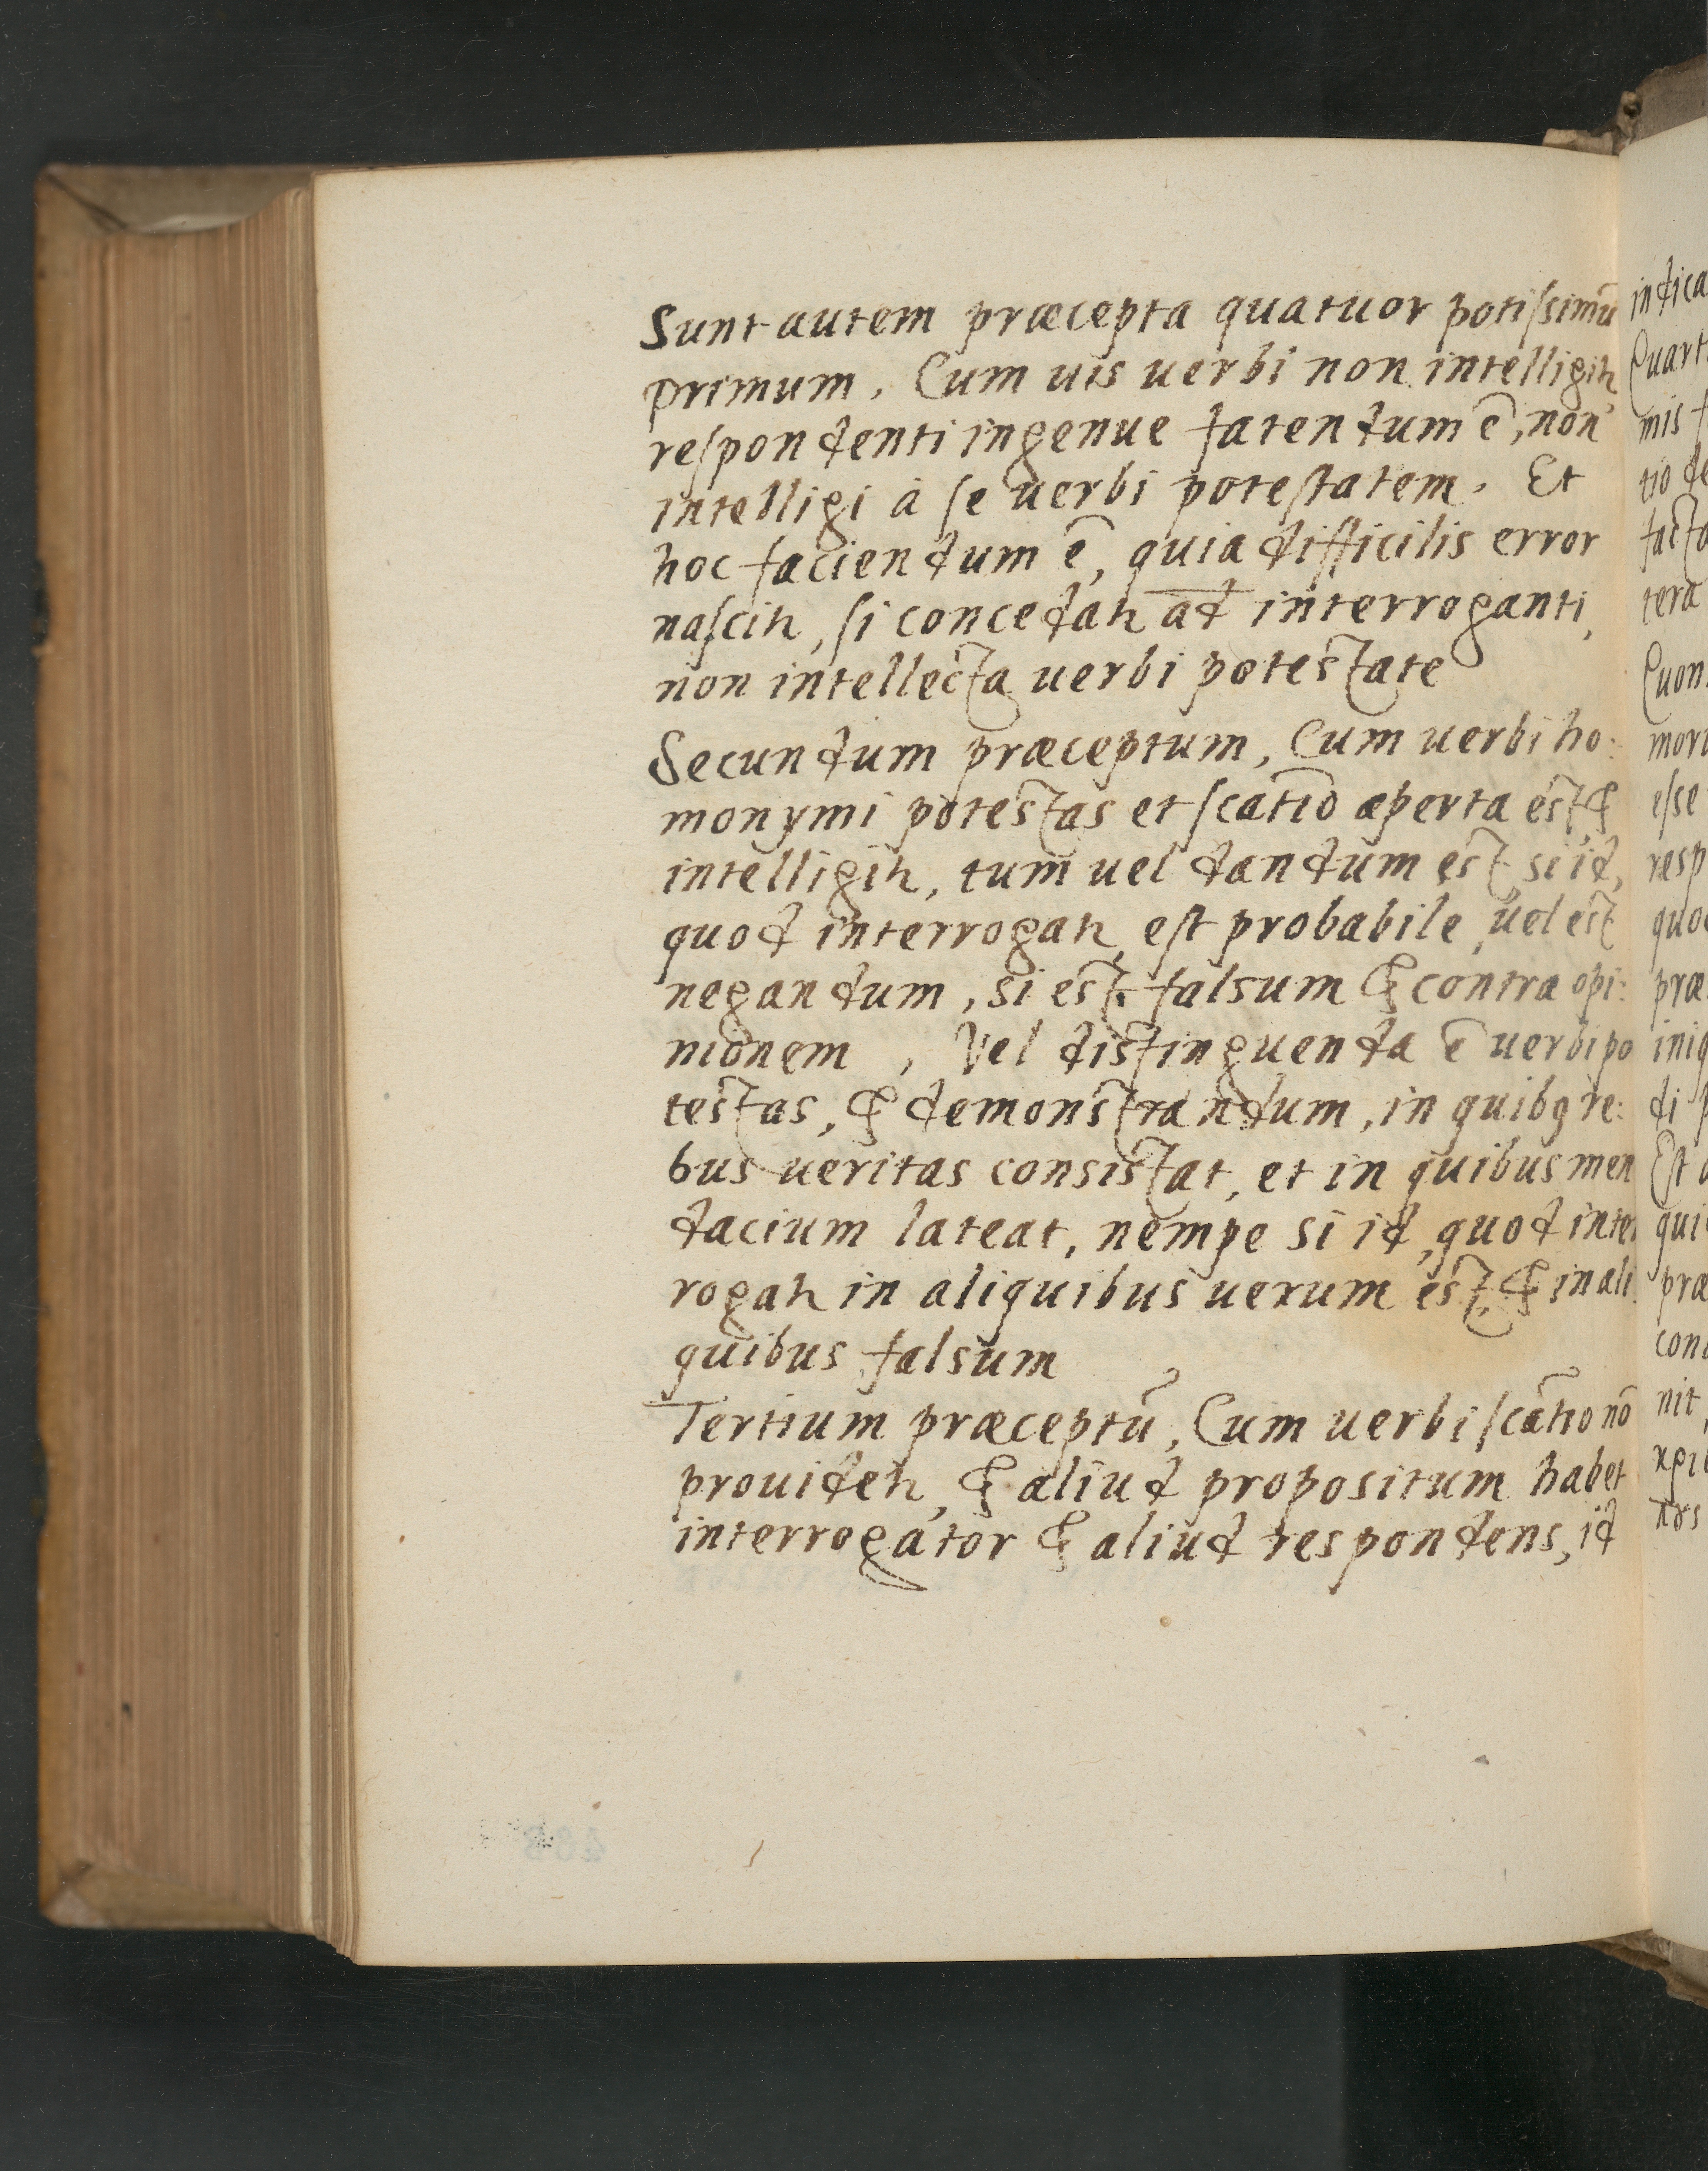 Sunt autem præcepta quatuor potiſsimū
primum. Cum uis uerbi non intelligit̃,
reſpondenti ingenue fatendum ē, non
intelligi à ſe uerbi poteſtatem. Et
hoc faciendum ē, quia difficilis error
naſcit̃, ſi concedat̃ ad interroganti,
non intellecta uerbi potestate
Secundum præceptum, Cum uerbi ho:
monymi potestas et ſcatiō aperta est &
intelligit̃, tum uel dandum est, si id,
quod interrogat̃, eſt probabile, uel est
negandum, si est falsum & contra opi:
nionem, Vel distinguenda ē uerbi po
testas, & demonstrandum, in quibꝫ re:
bus ueritas consistat, et in quibus men
dacium lateat, nempe si id, quod inter
rogat̃ in aliquibus uerum est, & in ali
quibus falsum
Tertium præceptū, Cum uerbi ſcātio nō
prouidet̃, & aliud propositum habet
interrogator & aliud respondens, id
indica
Quart
mis
tio de
facta
tera
Quon
mori
eſse
resp
quo
præ
iniq
di
Eſt
qui
præ
con
nit,